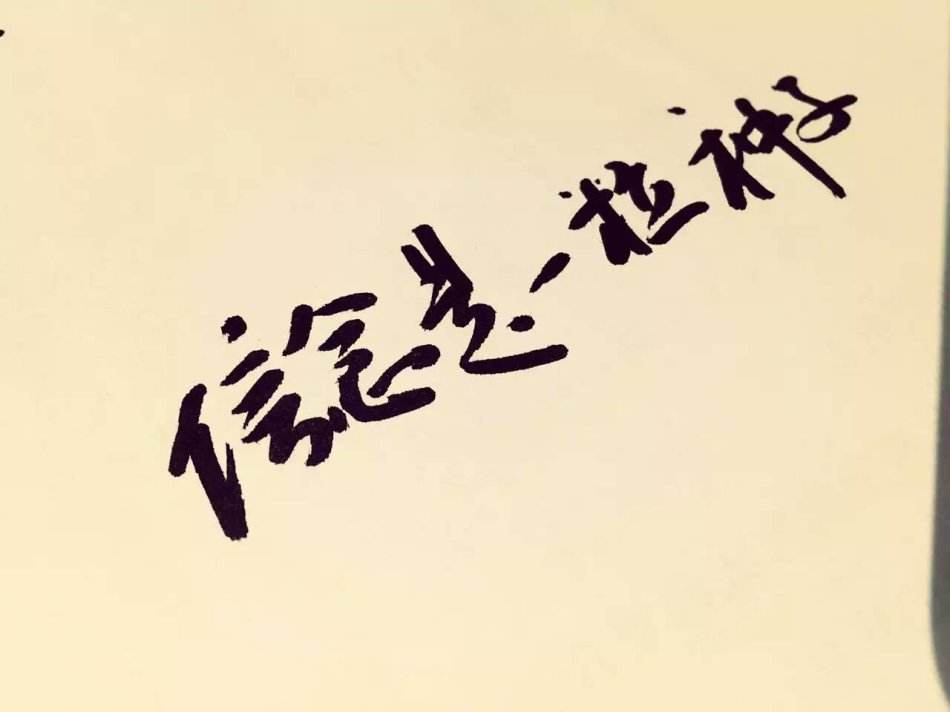 信念是一粒种子